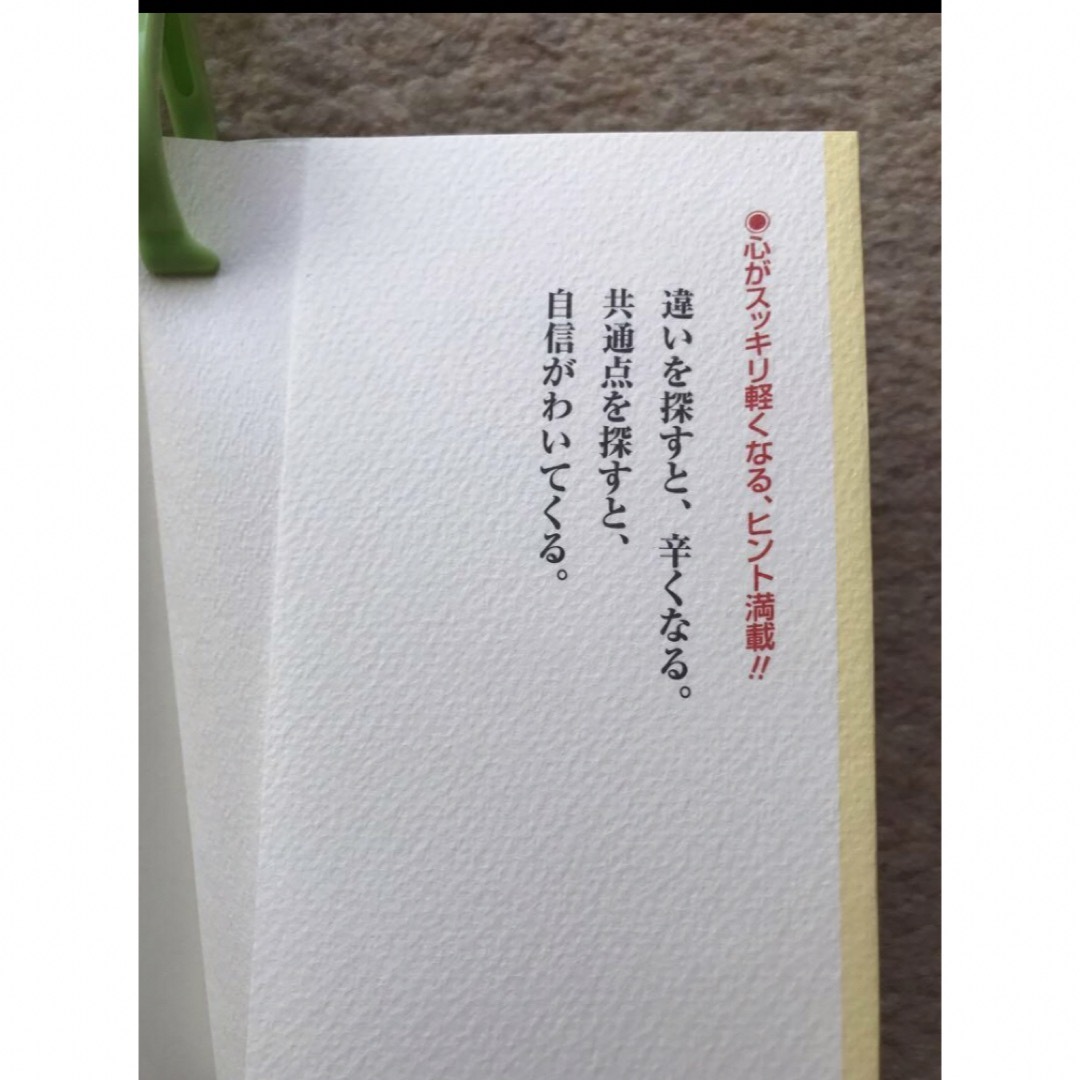 ◉心がスッキリ軽くなる、ヒント満載!!
違いを探すと、辛くなる。
共通点を探すと、
自信がわいてくる。